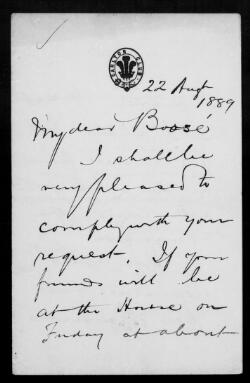 CARLTON CLUB
22 Augt
1889
My dear Boosé
I shall be
very pleased to
comply with your
request. If your
friends will be
at the House on
Friday at about